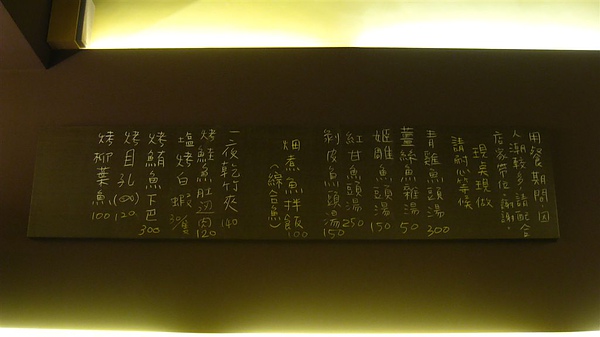 用餐期間因
人潮較多請配合
店家帶位，謝謝。
現點現做
請耐心等候
青雞魚頭湯 300
薑絲魚雜湯 50
姬雕魚頭湯 150
紅甘魚頭湯 250
剝皮魚頭湯 150
烟煮魚拌飯 100
(綜合魚)
一夜乾竹夾 140
烤鮭魚肚边肉 120
塩烤白蝦 30/隻
烤鮪魚下巴 300
烤目孔(QQ) 120
烤柳葉魚 100